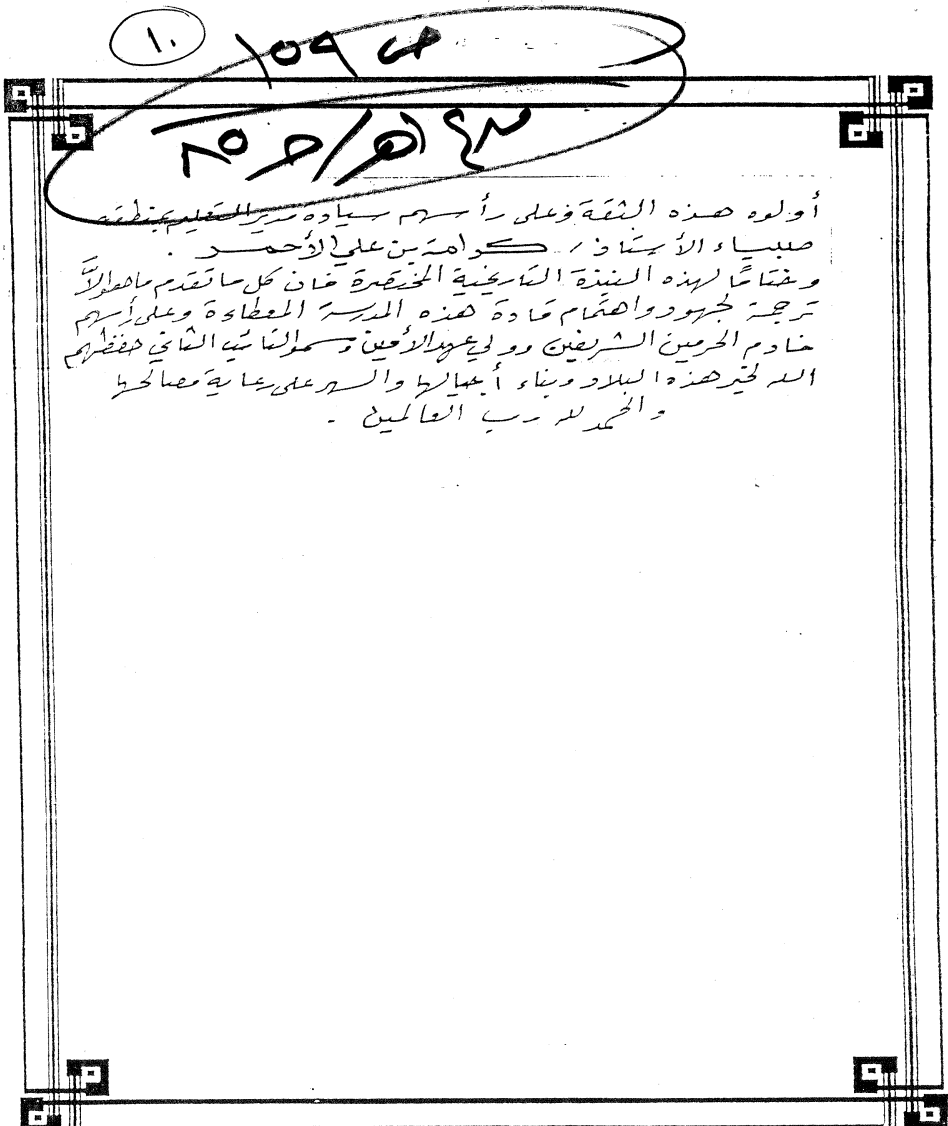 ١٠
ص ١٥٩
أولوه هذه الثقة وعلى رأسهم سيادة مدير التعليم بمنطقة
صبياء الأستاذ / كرامة بن علي الأحمر .
وختامًا لهذه النبذة التاريخية المختصرة فان كل ما تقدم ماهو إلاَّ
ترجمة لجهود واهتمام قادة هذه المدرسة المعطاءة وعلى رأسهم
خادم الحرمين الشريفين وولي عهد الأمين وسمو النائب الثاني حفظهم
الله لخير هذه البلاد وبناء أجيالها والسهر على رعاية مصالحها
والحمد لله رب العالمين .